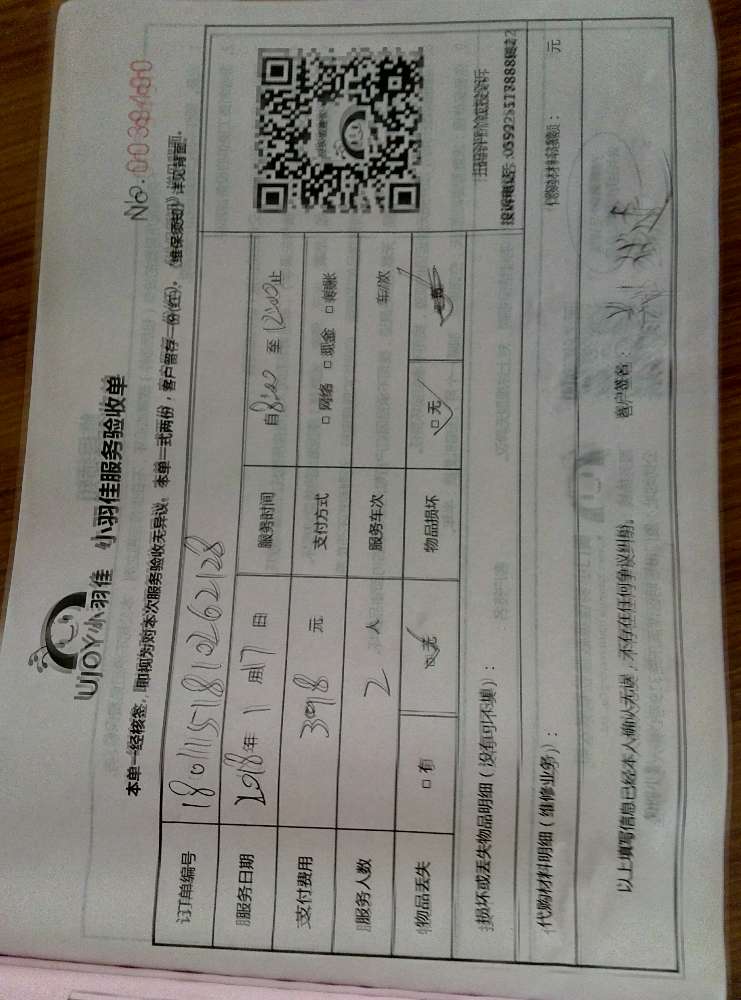 UJOY小羽佳 小羽佳服务验收单
本单一经核签，即视为对本次服务验收无异议。本单一式两份，客户留存一份(红)。《维保须知》详见背面。
订单编号
服务日期 2018年1月17日 服务时间 自8:00至12:00止
支付费用 398元 支付方式 □ 网络 □ 现金 □ 转账
服务人数 2人 服务车次 车/次
物品丢失 □ 有 □ 无 物品损坏 □ 无
损坏或丢失物品明细（没有可不填）：
代购材料明细（维修业务）： 元
以上填写信息已经本人确认无误，不存在任何争议纠纷。 客户签名：